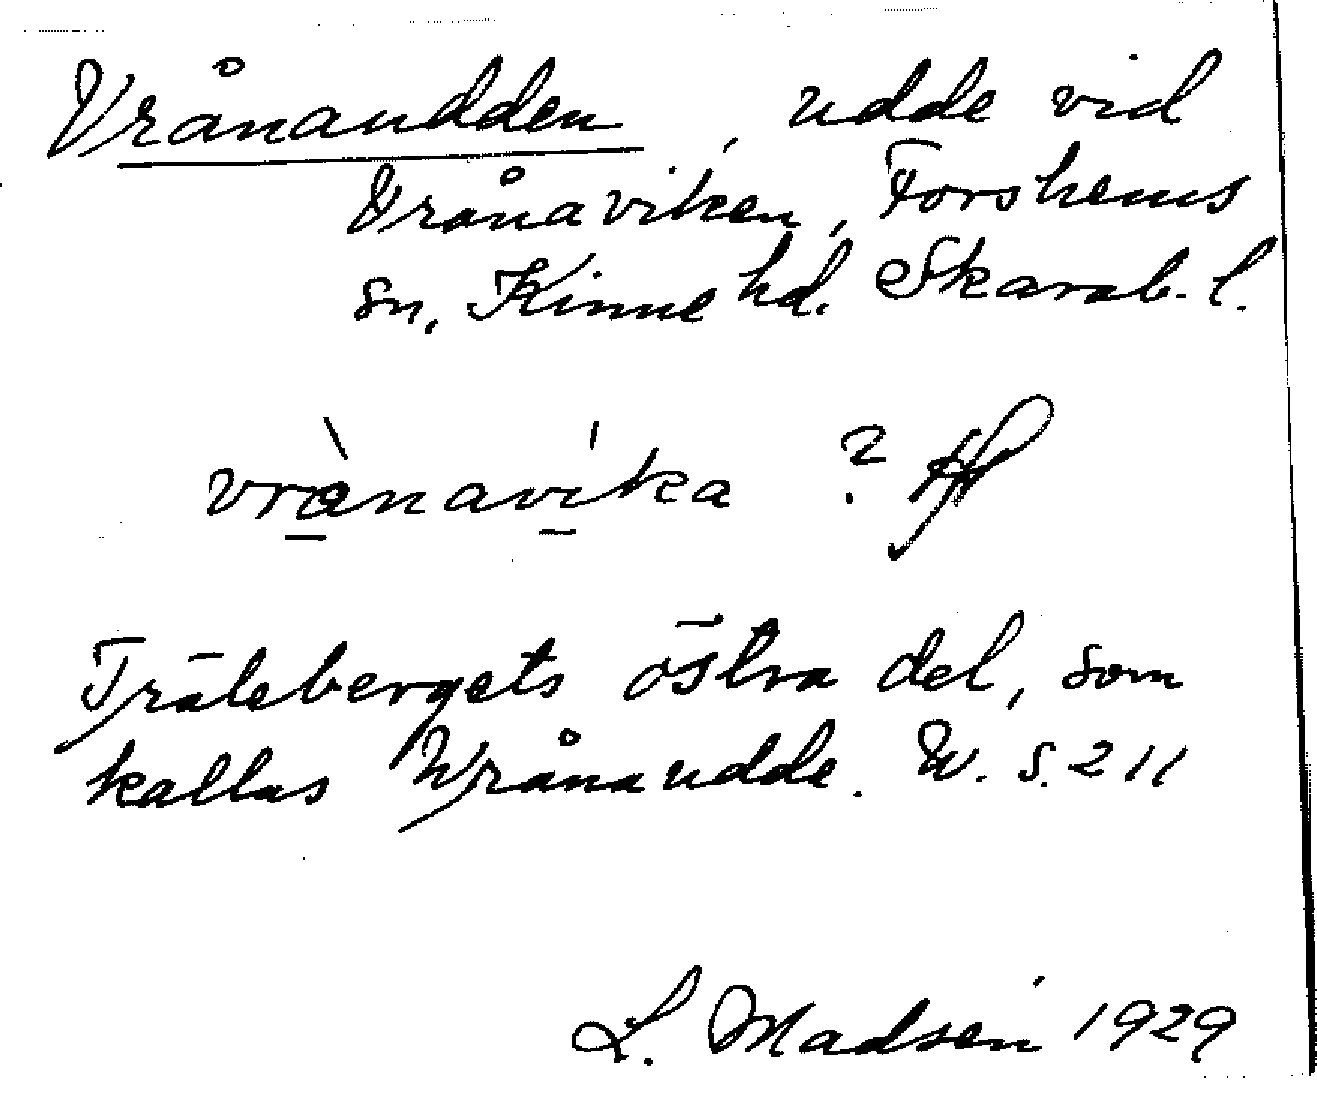 Vrånaudden, udde vid
Vrånaviken, Forshems
sn, Kinne hd. Skarab. l.
vrànavíka ?
Träleberget̄s östra del, som
kallas Wrånaudde. W. S. 211
L. Madsén 1929